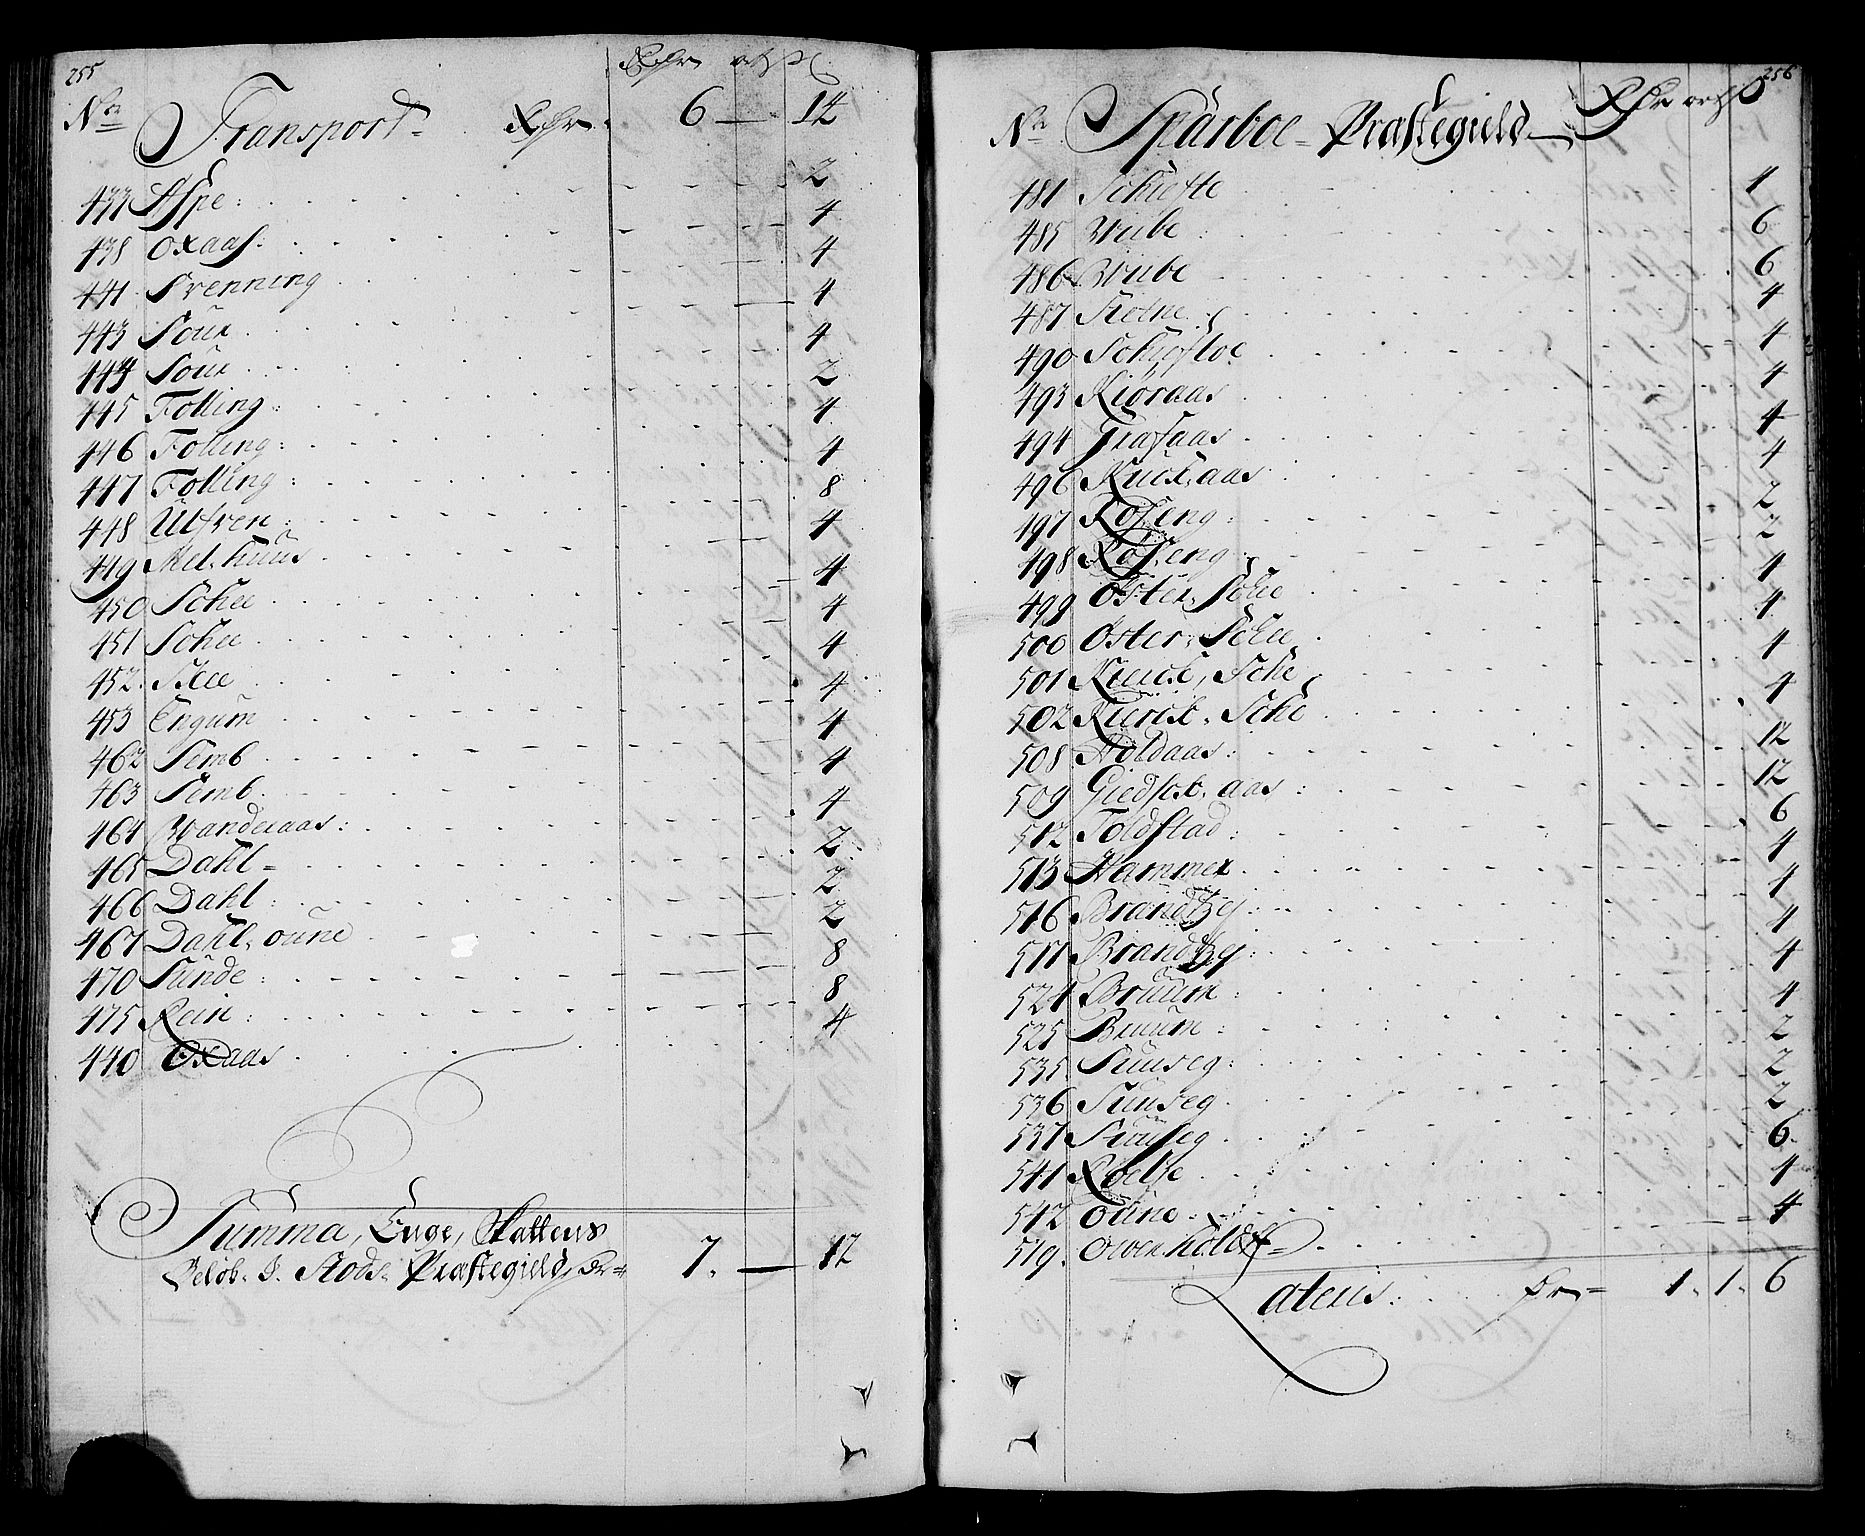 255
Rdr ort ß
No Transport Rdr 6 — 14
433 Aspe 2
438 Oxaas 4
441 Svenning 4
443 Sour 4
444 Sour 4
445 Folling 2
446 Folling 4
447 Folling 4
448 Ulfven 8
449 Mel,huus 4
450 Schee 4
451 Schee 4
452 Skee 4
453 Engum 4
462 Semb 4
463 Semb 4
464 Wanderaas 4
465 Dahl 2
466 Dahl 2
467 Dahl,oune 2
470 Sunde 8
475 Rein 8
440 Oxaas 4
Summa, Enge, Skattens
Beløb. I. Stods Præstegield, Rdr 7. — 12
256
No Sparboe Præstegield Rdr ort ß
481 Schiefte 4
485 Wiibe 6
486 Wiibe 6
487 Holme 4
490 Schiefloe 4
493 Kiøraas 4
494 Græsaas 4
496 Kuck,aas 4
497 Røseng 2
498 Røseng 2
499 Øster, Schee 4
500 Øster, Schee 4
501 Kierck, Sche 4
502 Kierck, Sche 4
508 Holdaas 12
509 Giedsox,aas 12
512 Toldstad 6
513 Hammer 4
516 Brandtzeg 4
517 Brandtzeg 4
524 Bruum 4
525 Bruum 4
535 Suuseg 2
536 Suuseg 2
537 Suuseg 2
541 Roelse 6
542 Oune 4
519 Owerholdt 4
Lateris Rdr 1. 1. 6